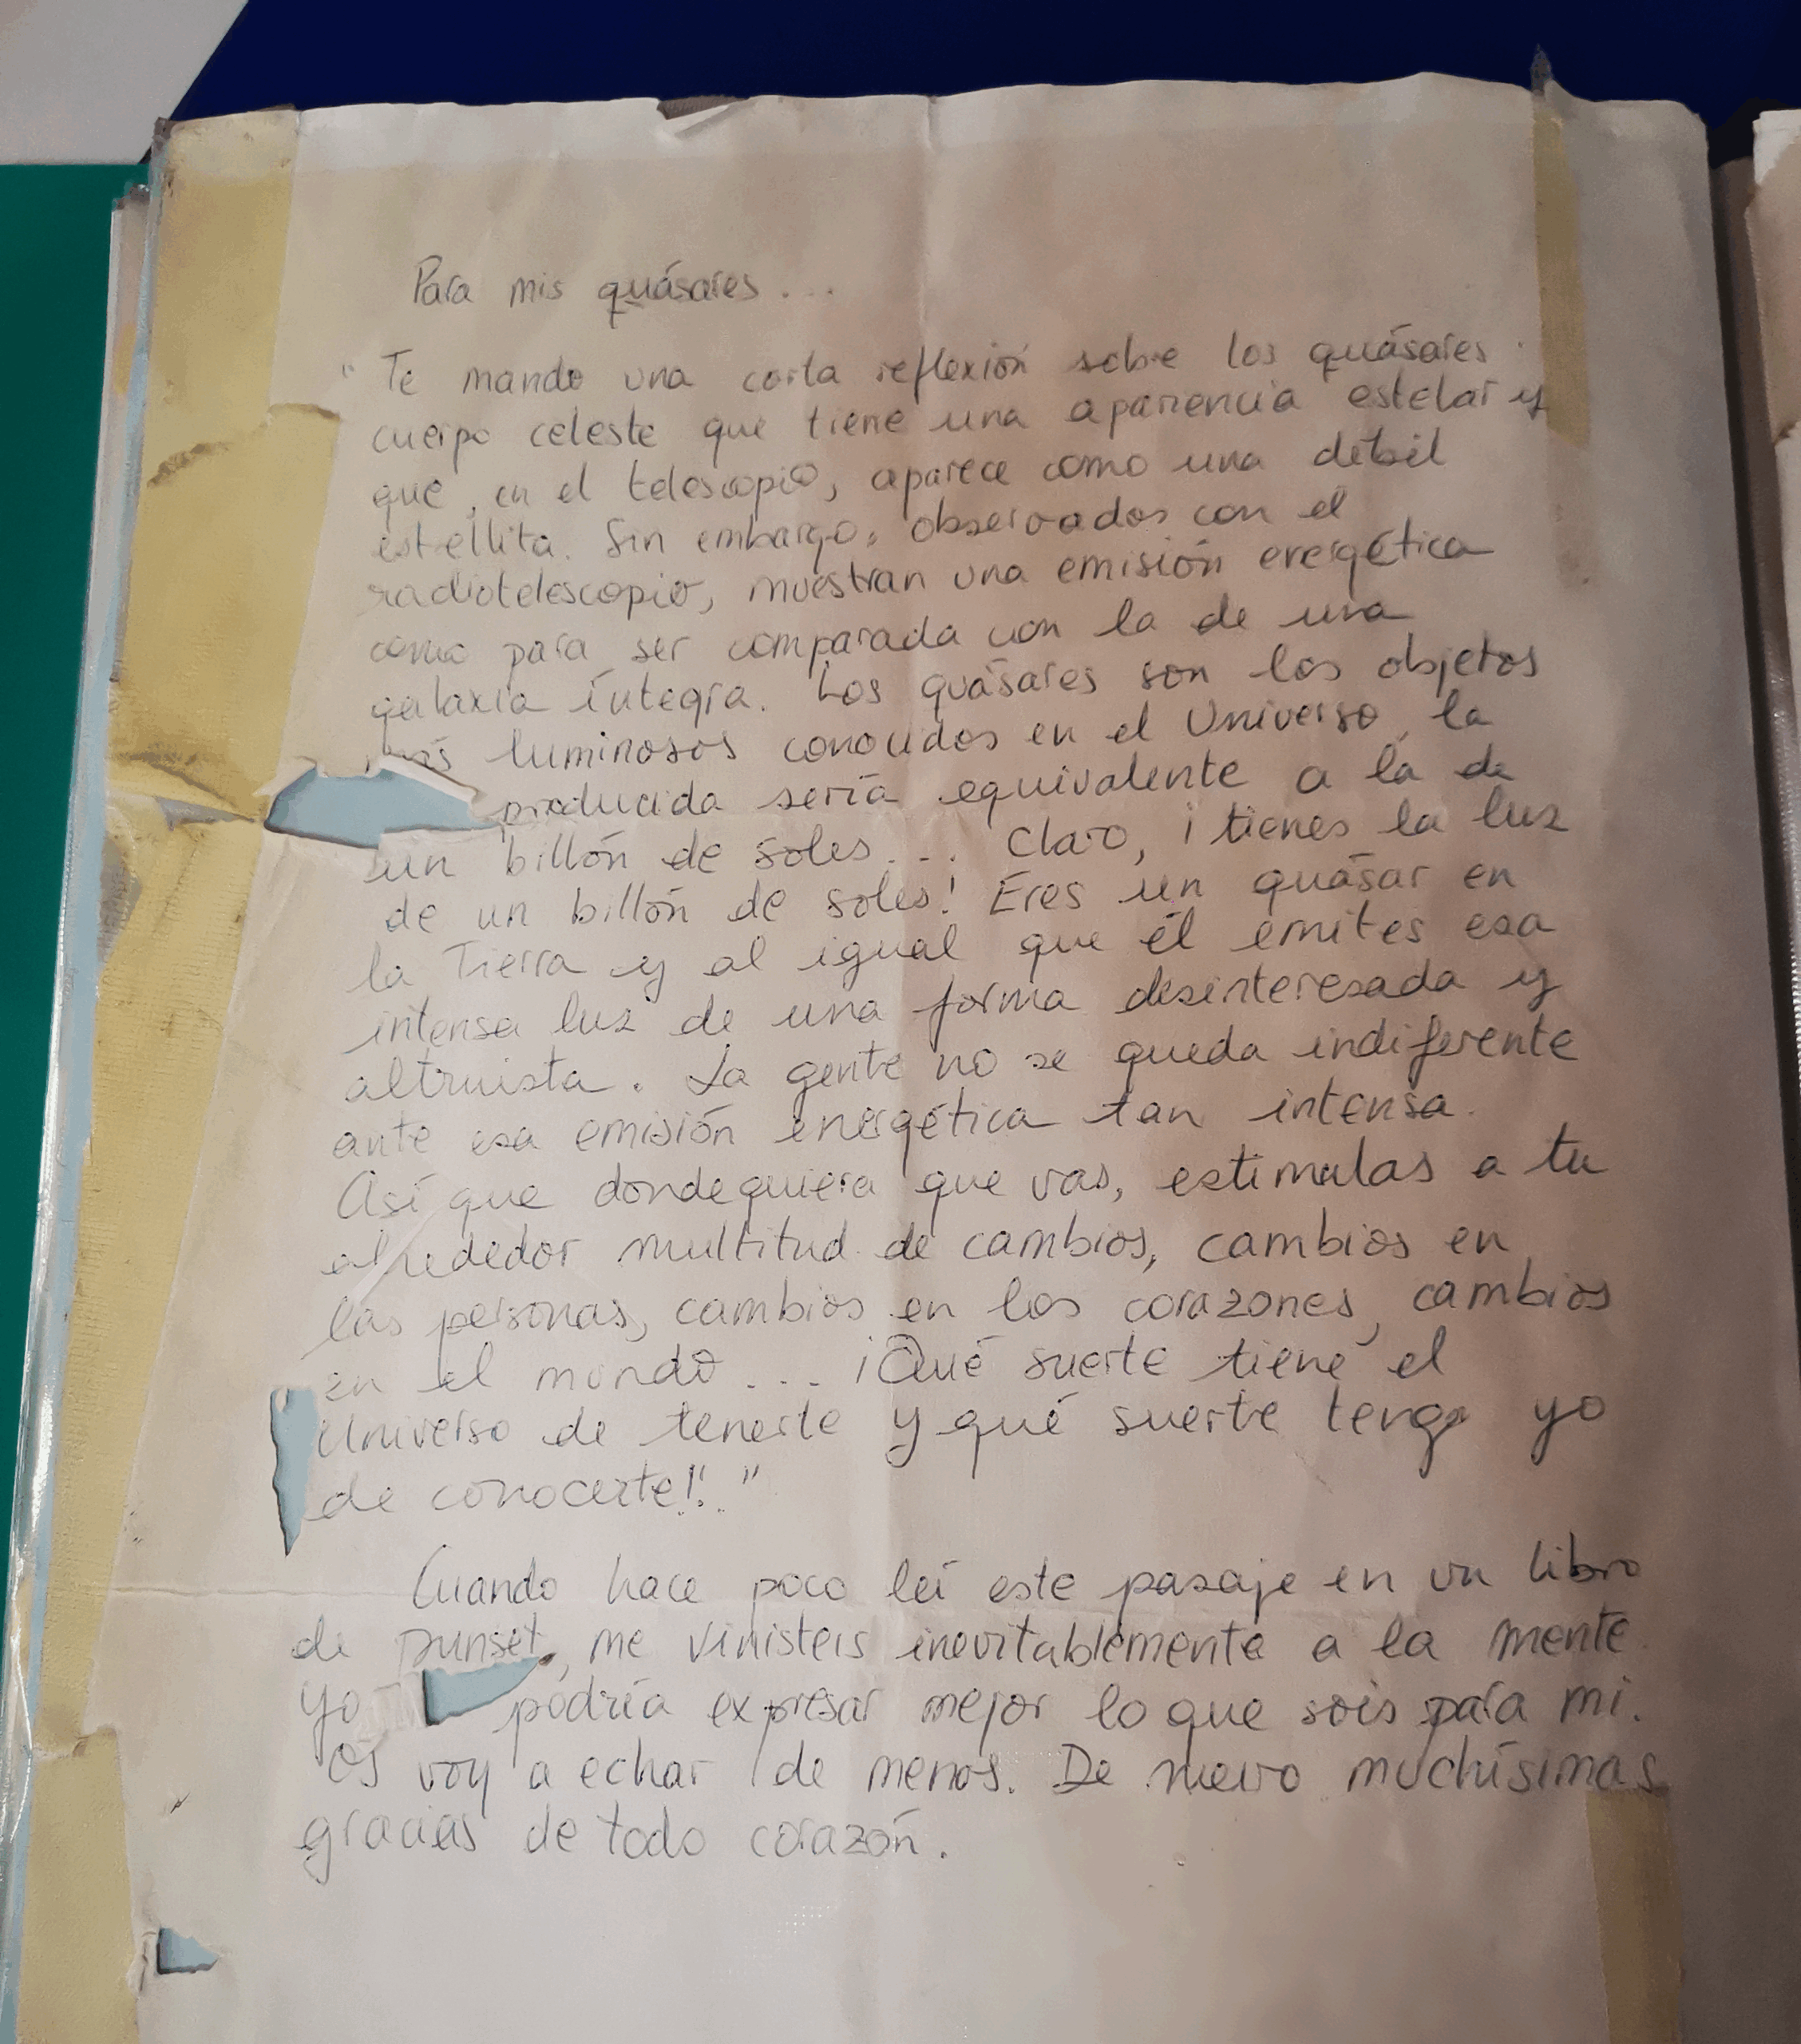 Para mis quásares...
" Te mando una corta reflexión sobre los quásares
cuerpo celeste que tiene una apariencia estelar y
que, en el telescopio, aparece como una débil
estellita. Sin embargo, observados con el
radiotelescopio, muestran una emisión energética
como para ser comparada con la de una
galaxia íntegra. Los quásares son los objetos
más luminosos conocidos en el Universo, la
producida sería equivalente a la de
un billón de soles... Claro, ¡tienes la luz
de un billón de soles! Eres un quásar en
la Tierra y al igual que él emites esa
intensa luz de una forma desinteresada y
altruista. La gente no se queda indiferente
ante esa emisión energética tan intensa.
Así que dondequiera que vas, estimulas a tu
alrededor multitud de cambios, cambios en
las personas, cambios en los corazones, cambios
en el mundo... ¡Qué suerte tiene el
Universo de tenerte y qué suerte tengo yo
de conocerte!"
Cuando hace poco leí este pasaje en un libro
de Punset, me vinisteis inevitablemente a la mente
yo podría expresar mejor lo que sois para mi.
Os voy a echar de menos. De nuevo muchísimas
gracias de todo corazón.